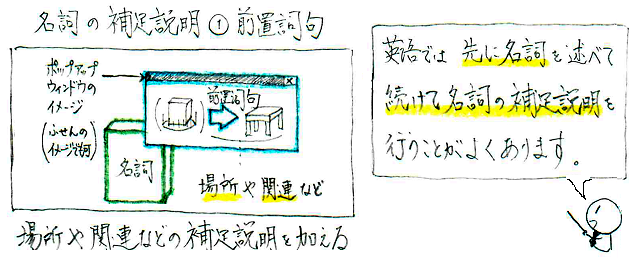 名詞の補足説明①前置詞句
ポップアップ
ウィンドウの
イメージ
(ふせんの
イメージでも可)
前置詞句
名詞
場所や関連など
場所や関連などの補足説明を加える
英語では 先に名詞を述べて
続けて名詞の補足説明を
行うことがよくあります。